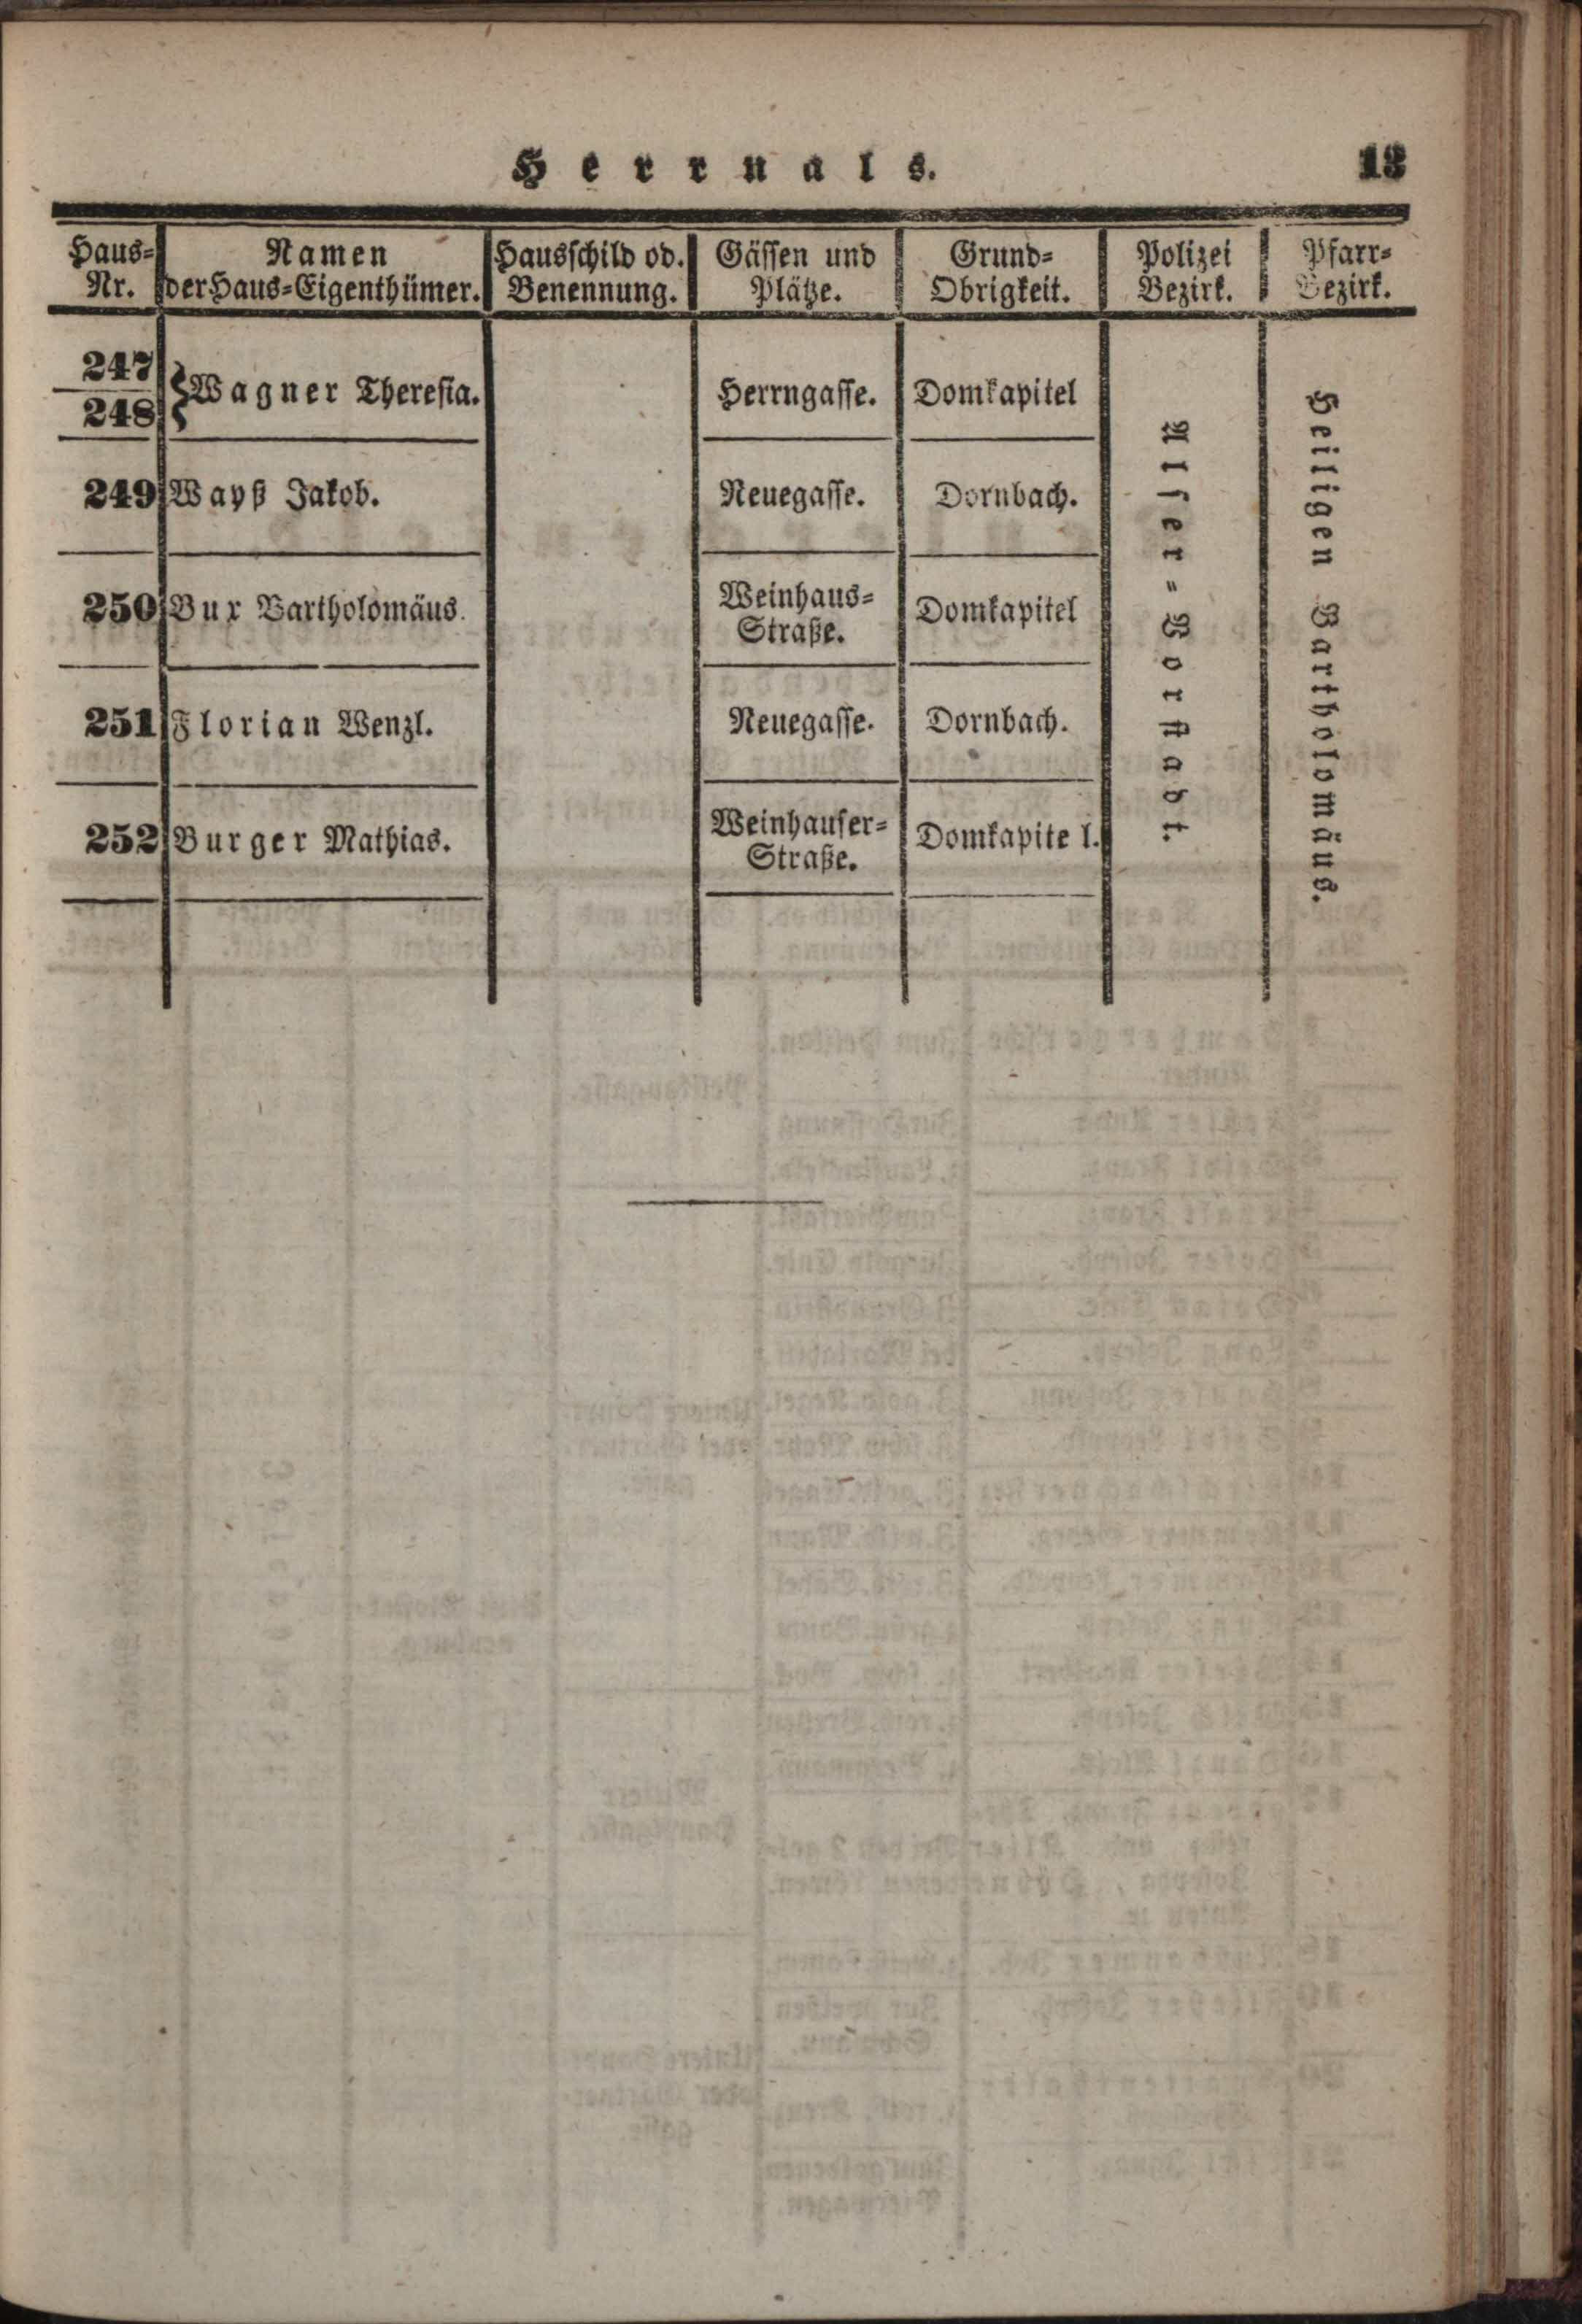 Herrnals. 13
Haus-Nr. Namen der Haus-Eigenthümer. Hausschild od. Benennung. Gässen und Plätze. Grund-Obrigkeit. Polizei Bezirk. Pfarr-Bezirk.
247
248 Wagner Theresia. Herrngasse. Domkapitel
249 Wayß Jakob. Neuegasse. Dornbach.
250 Bux Bartholomäus. Weinhaus-
Straße. Domkapitel
251 Florian Wenzl. Neuegasse. Dornbach.
252 Burger Mathias. Weinhauser-
Straße. Domkapitel.
Alser-Vorstadt.
Heiligen Bartholomäus.